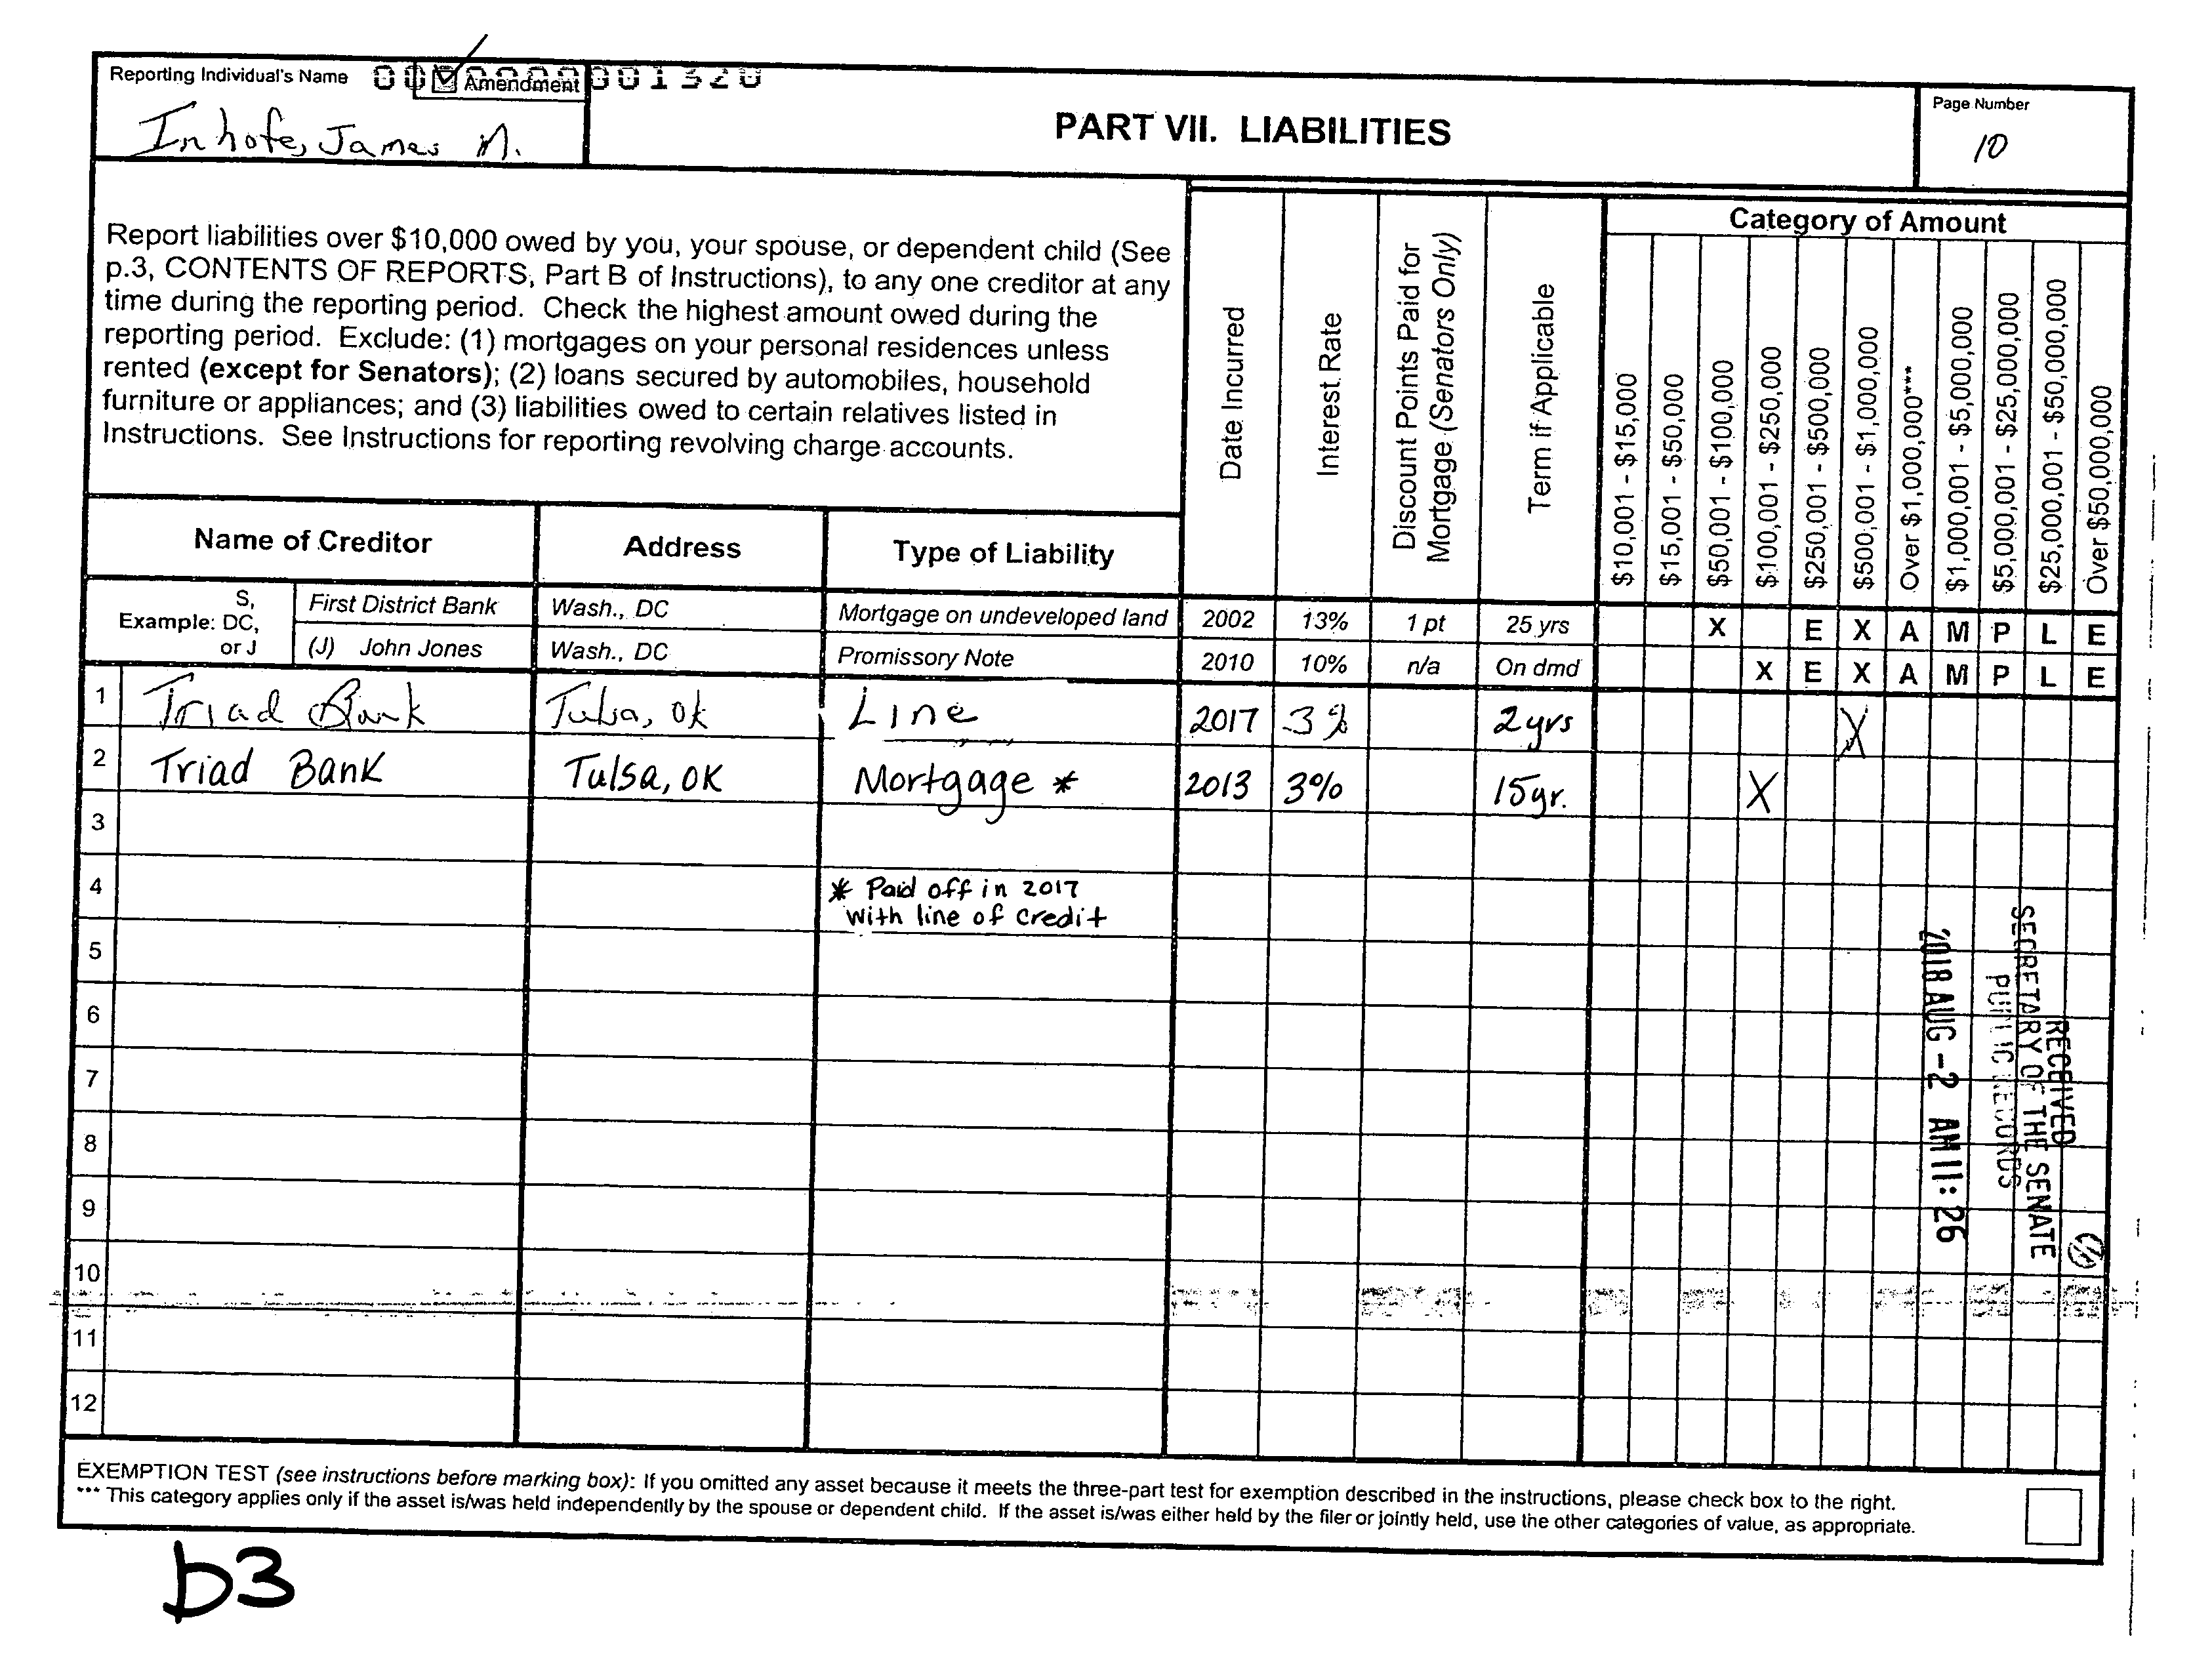 Reporting Individual's Name
Amendment
Inhofe, James M.
PART VII. LIABILITIES
Page Number
10
Report liabilities over $10,000 owed by you, your spouse, or dependent child (See
p.3, CONTENTS OF REPORTS, Part B of Instructions), to any one creditor at any
time during the reporting period. Check the highest amount owed during the
reporting period. Exclude: (1) mortgages on your personal residences unless
rented (except for Senators); (2) loans secured by automobiles, household
furniture or appliances; and (3) liabilities owed to certain relatives listed in
Instructions. See Instructions for reporting revolving charge accounts.
Date Incurred
Interest Rate
Discount Points Paid for
Mortgage (Senators Only)
Term if Applicable
Category of Amount
$10,001 - $15,000
$15,001 - $50,000
$50,001 - $100,000
$100,001 - $250,000
$250,001 - $500,000
$500,001 - $1,000,000
Over $1,000,000***
$1,000,001 - $5,000,000
$5,000,001 - $25,000,000
$25,000,001 - $50,000,000
Over $50,000,000
Name of Creditor Address Type of Liability
Example: S, DC, or J
First District Bank Wash., DC Mortgage on undeveloped land 2002 13% 1 pt 25 yrs X E X A M P L E
(J) John Jones Wash., DC Promissory Note 2010 10% n/a On dmd X E X A M P L E
1 Triad Bank Tulsa, OK Line 2017 3% 2 yrs X
2 Triad Bank Tulsa, OK Mortgage * 2013 3% 15 yr. X
3
4 * Paid off in 2017
with line of credit
5
6
7
8
9
10
11
12
RECEIVED
SECRETARY OF THE SENATE
PUBLIC RECORDS
2018 AUG -2 AM 11:26
EXEMPTION TEST (see instructions before marking box): If you omitted any asset because it meets the three-part test for exemption described in the instructions, please check box to the right.
*** This category applies only if the asset is/was held independently by the spouse or dependent child. If the asset is/was either held by the filer or jointly held, use the other categories of value, as appropriate.
b3